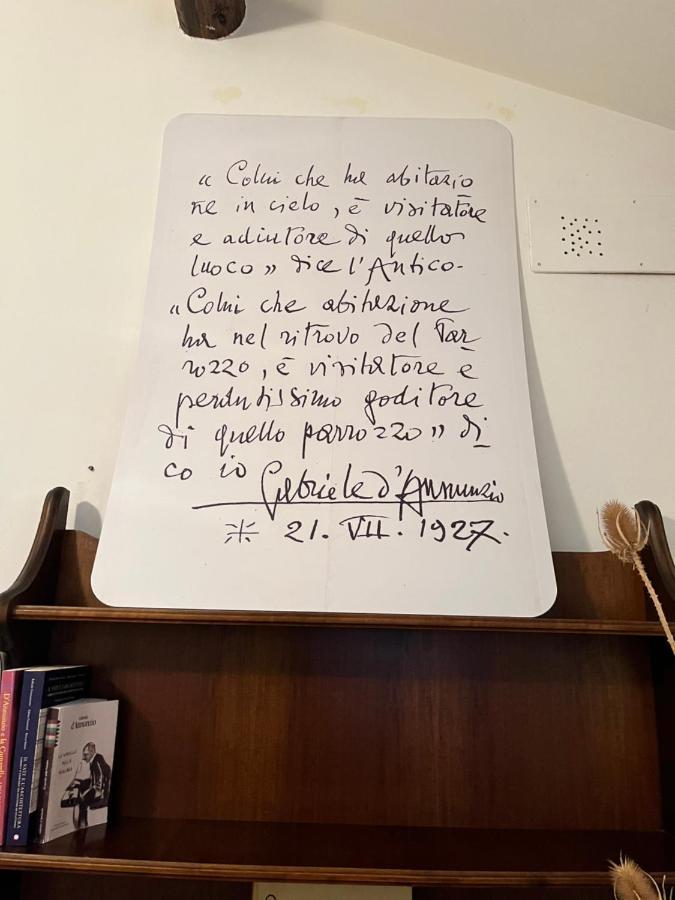 « Colui che ha abitazio
ne in cielo, è visitatore
e adiutore di quello
luoco » dice l'Antico-
« Colui che abitazione
ha nel ritrovo del Par
rozzo, è visitatore e
perdutissimo goditore
di quello parrozzo » di
co io
Gabriele d'Annunzio
21. VII. 1927.
D'Annunzio e la
IL VATE E L'ARCHITETTURA
d'Annunzio
LE NOVELLE
DELLA
PESCARA